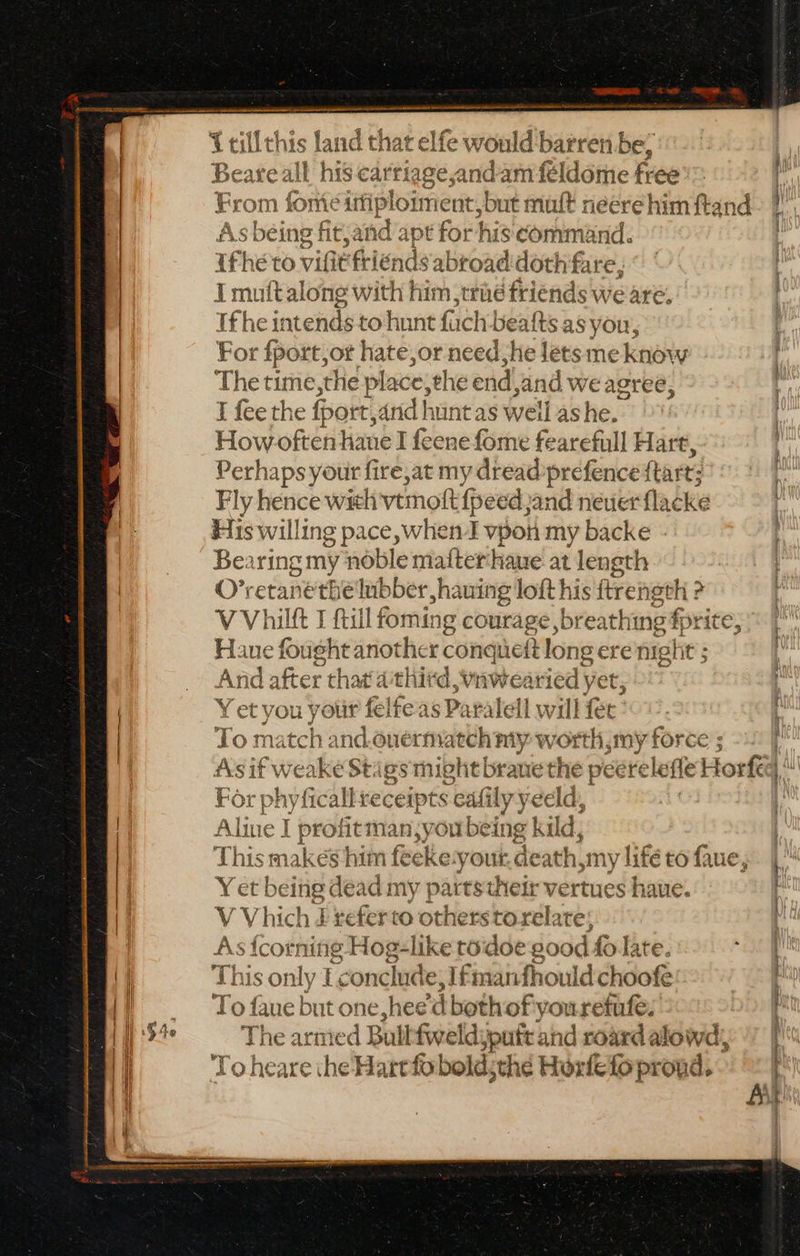 I till this land that elſe would barren be,
Beare all his carriage, and am ſeldome free
From ſome imploiment, but muſt neere him ſtand
As being fit, and apt for his command.
If he to viſit friends abroad doth fare,
I muſt along with him, true friends we are.
If he intends to hunt ſuch beaſts as you,
For ſport, or hate, or need, he lets me know
The time, the place, the end, and we agree,
I ſee the ſport, and hunt as well as he.
How often haue I ſeene ſome fearefull Hart,
Perhaps your ſire, at my dread preſence ſtart;
Fly hence with vtmoſt ſpeed, and neuer ſlacke
His willing pace, when I vpon my backe
Bearing my noble maſter haue at length
O'retane the lubber, hauing loſt his ſtrength?
VVhilſt I ſtill foming courage, breathing ſprite,
Haue fought another conqueſt long ere night;
And after that a third, vnwearied yet,
Yet you your ſelfe as Paralell will ſet
To match and ouermatch my worth, my force;
As if weake Stags might braue the peereleſſe Horſe,
For phyſicall receipts eaſily yeeld,
Aliue I profit man, you being kild,
This makes him ſeeke your death, my life to ſaue,
Yet being dead my parts their vertues haue.
VVhich I refer to others to relate,
As ſcorning Hog-like to doe good ſo late.
This only I conclude, If man ſhould chooſe
To ſaue but one, hee'd both of you refuſe.
54. The armed Bull ſweld, puft and roard alowd,
To heare the Hart ſo bold, the Horſe ſo proud.